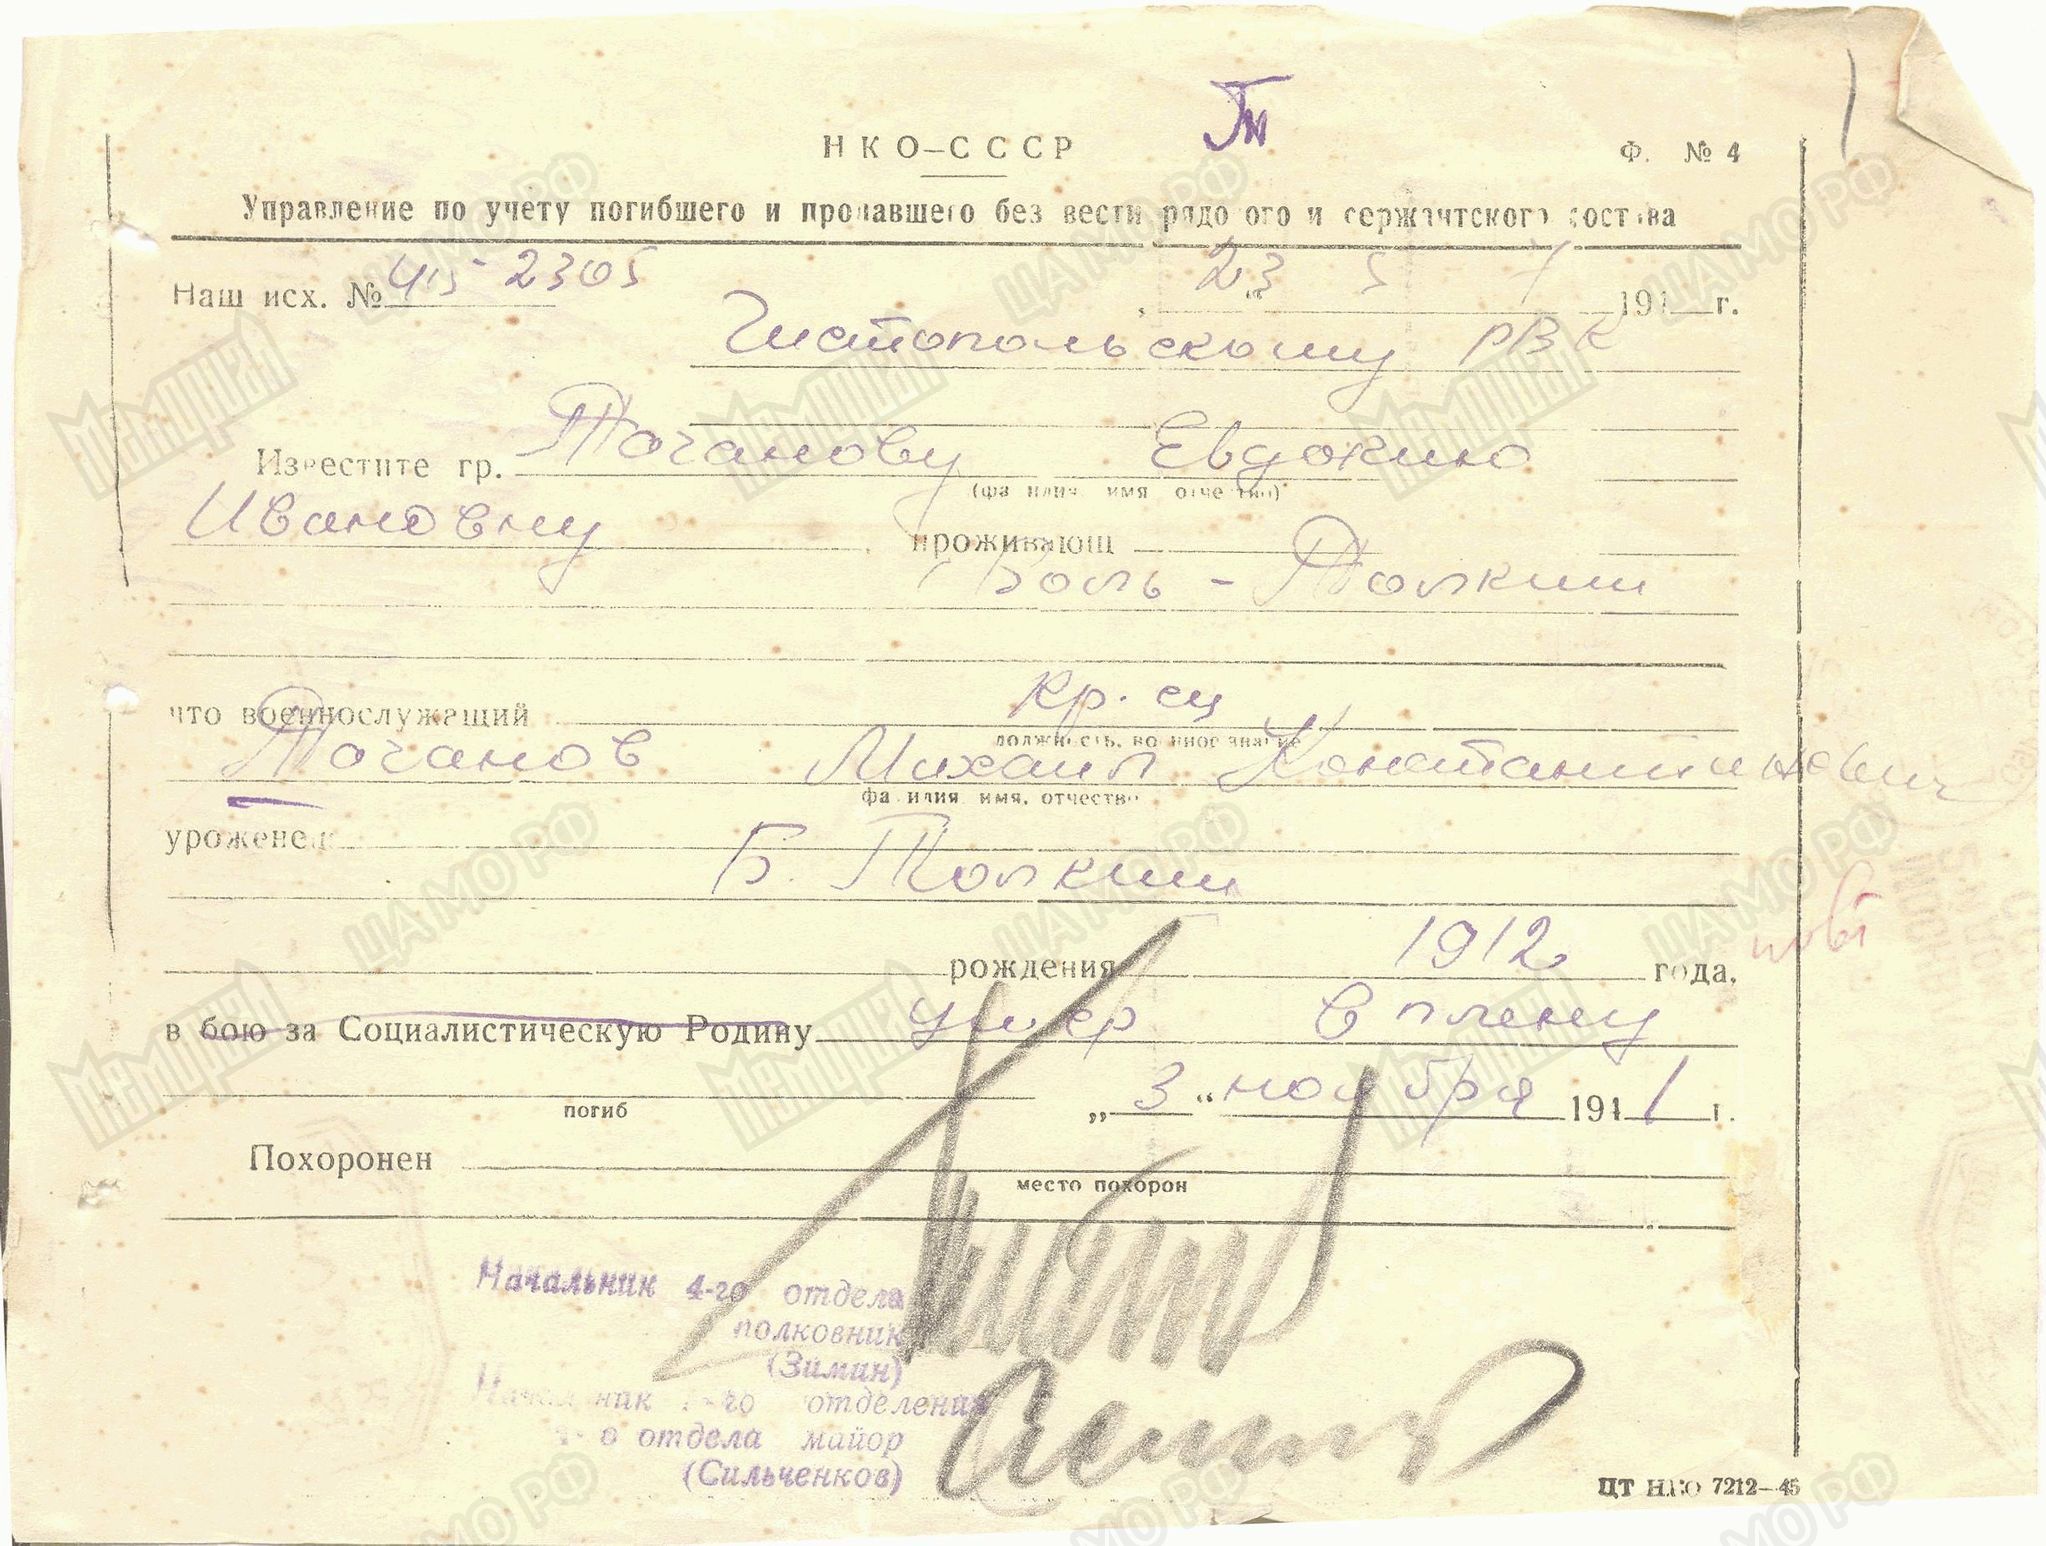 НКО–СССР
Ф. № 4
Управление по учету погибшего и пропавшего без вести рядового и сержантского состава
Наш исх. № 45-2305
23 5 194 г.
Чистопольскому РВК
Известите гр. Точанову Евдокию
(фамилия имя отчество)
Ивановну проживающ
Боль-Толкиш
что военнослужащий кр-ец
должность, военное звание
Точанов Михаил Константинович
фамилия, имя, отчество
уроженец
Б. Толкиш
рождения 1912 года,
в бою за Социалистическую Родину умер в плену
погиб
„3“ ноября 1941 г.
Похоронен
место похорон
Начальник 4-го отдела
полковник
(Зимин)
Начальник отделения
отдела майор
(Сильченков)
ЦТ НКО 7212–45
Мемориал
ЦАМО РФ